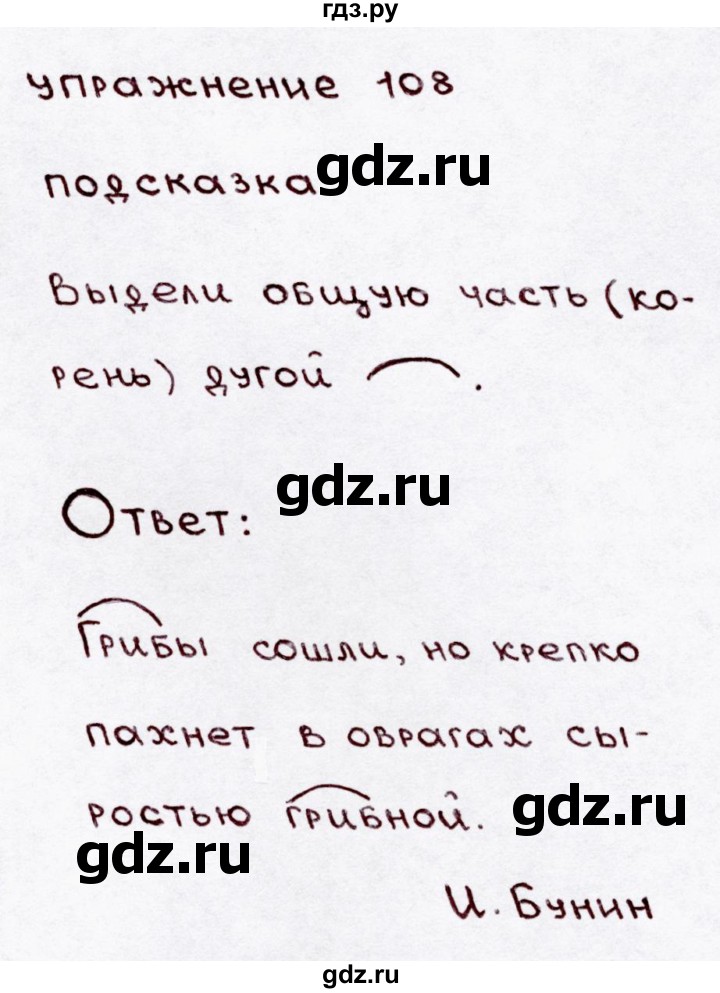 гдз.ру
упражнение 108
подсказка gdz.ru
Выдели общую часть (ко-
рень) дугой ⌒.
gdz.ru
Ответ:
Грибы сошли, но крепко
пахнет в оврагах сы-
ростью грибной. gdz.ru
gdz.ru
И. Бунин
gdz.ru